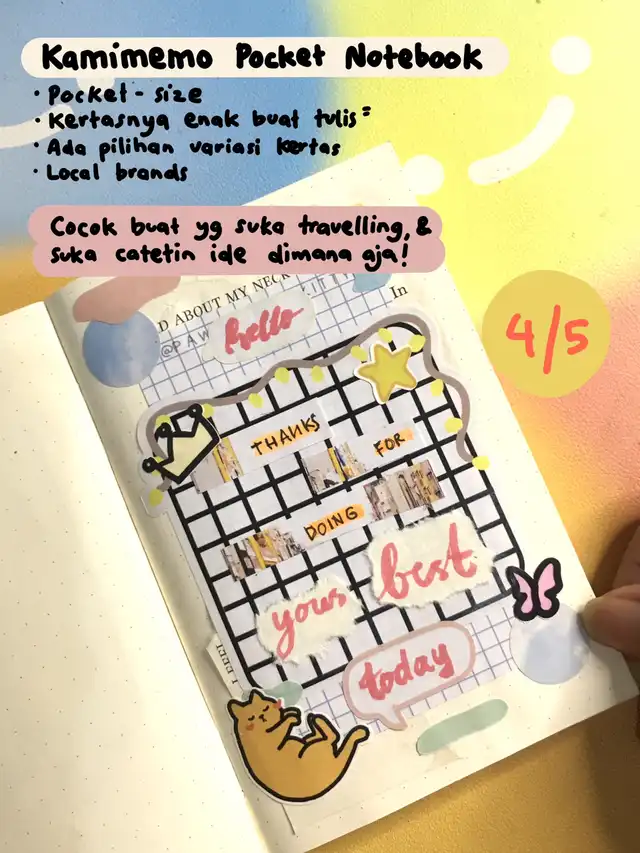 Kamimemo Pocket Notebook
• Pocket-size
• Kertasnya enak buat tulis²
• Ada pilihan variasi kertas
• Local brands
Cocok buat yg suka travelling, &
suka catetin ide dimana aja!
4/5
D ABOUT MY NECK
In
@PAW
hello
THANKS
FOR
DOING
your best
today
I FEEL